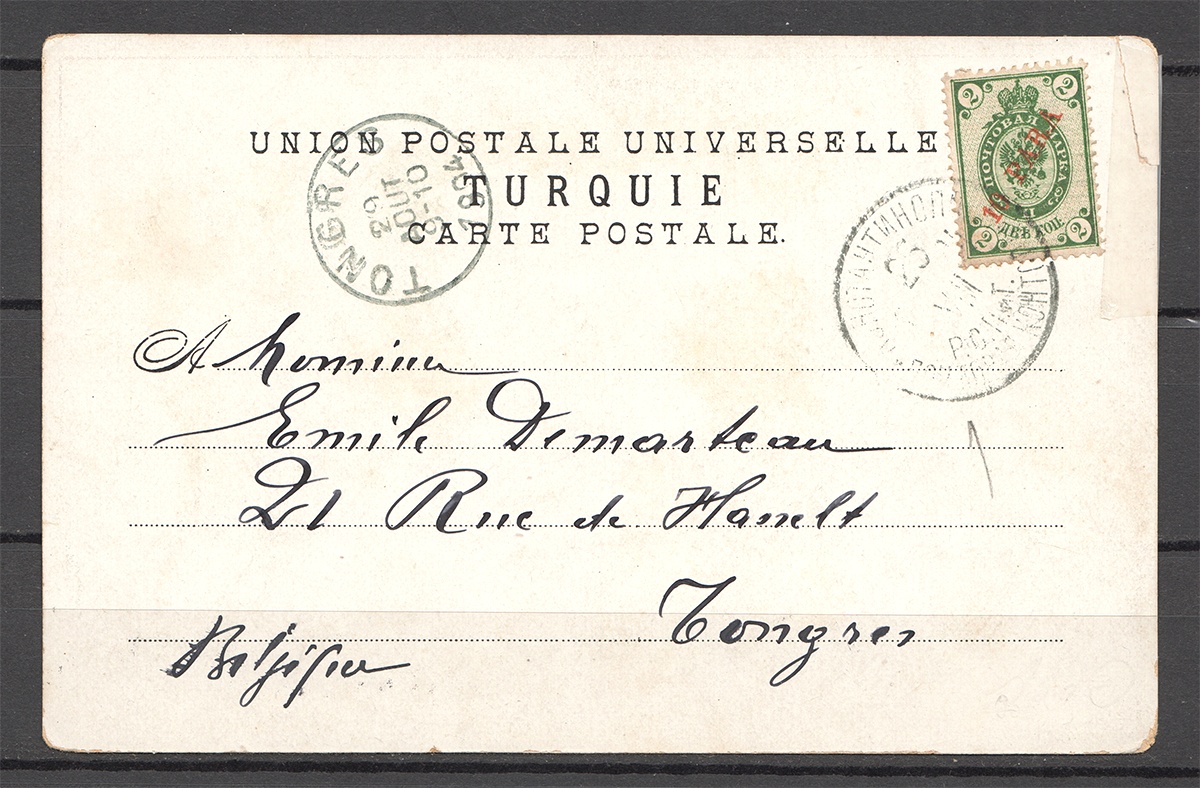 UNION POSTALE UNIVERSELLE
TURQUIE
CARTE POSTALE.
TONGRES
26
AOUT
8-10
1904
2 2
ПОЧТОВАЯ МАРКА
10 PARA
2 2
ДВѢ КОП.
КОНСТАНТИНОПО
23
VIII
Р.О.П.и Т.
КОНТО
A Monsieur
Emile Demarteau
21 Rue de Hasselt
Tongres
Belgique